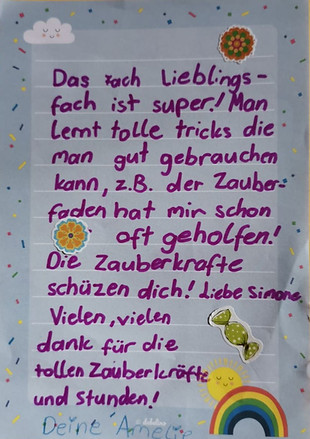 Das Fach Lieblings-
fach ist super! Man
lernt tolle tricks die
man gut gebrauchen
kann, z.B. der Zauber-
faden hat mir schon
oft geholfen!
Die Zauberkrafte
schüzen dich! Liebe Simone.
Vielen, vielen
dank für die
tollen Zauberkräfte
und Stunden!
Deine Amelie